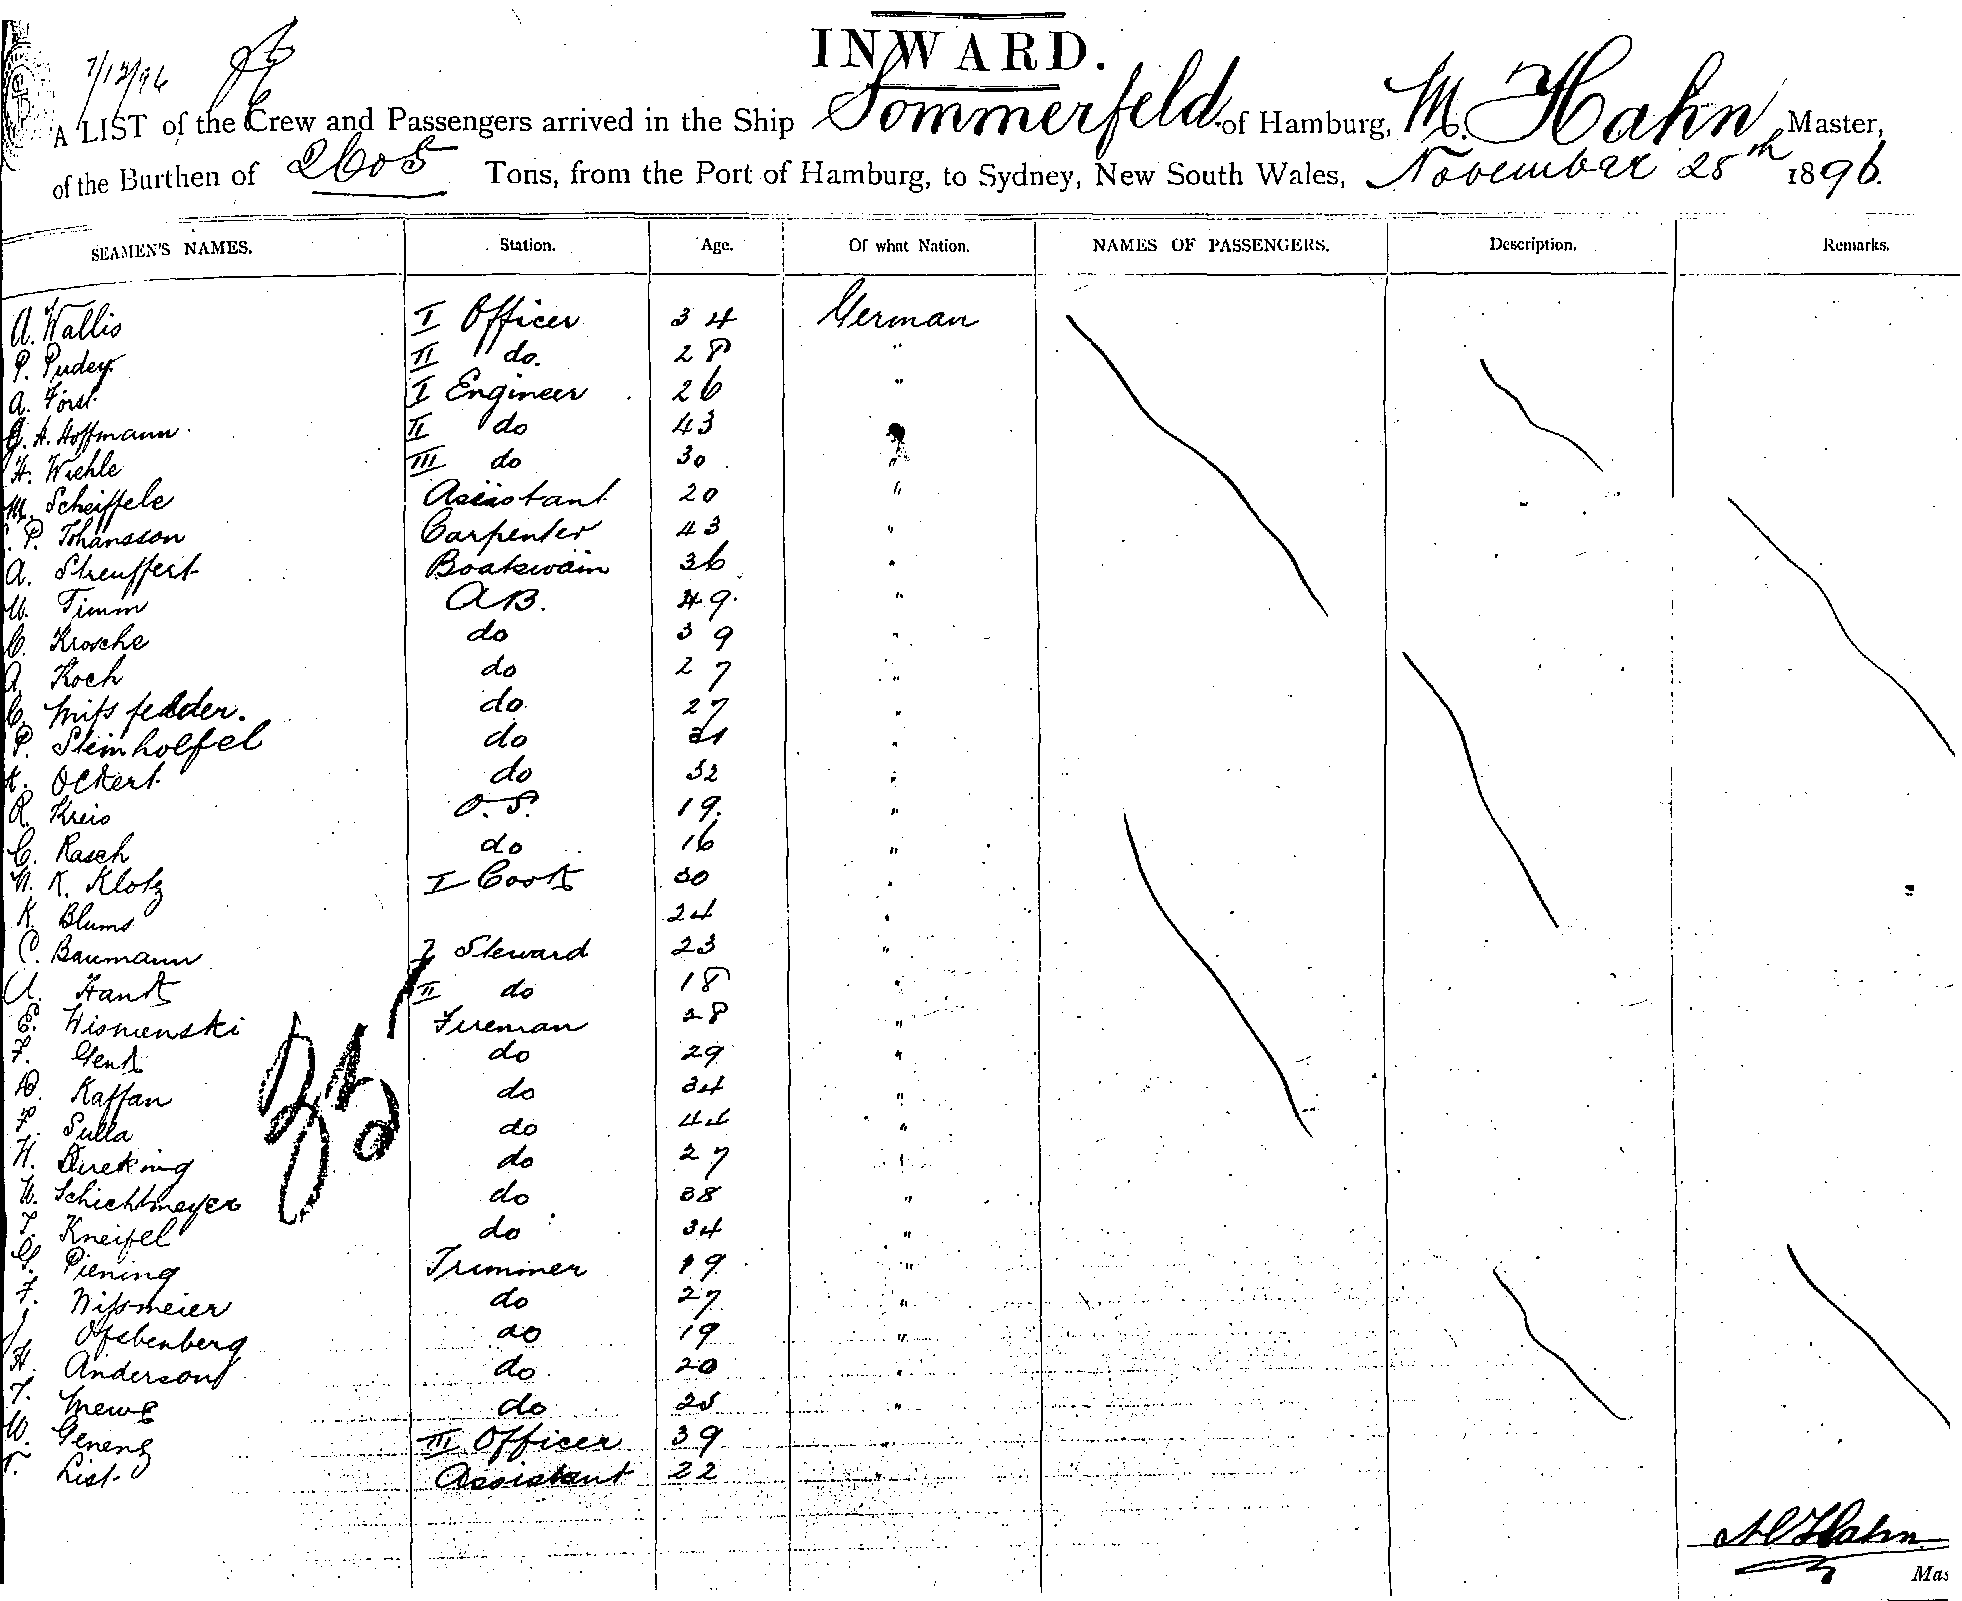 INWARD.
7/12/96
A LIST of the Crew and Passengers arrived in the Ship Sommerfeld of Hamburg, M. Hahn Master,
of the Burthen of 2605 Tons, from the Port of Hamburg, to Sydney, New South Wales, November 28th 1896.
SEAMEN'S NAMES. Station. Age. Of what Nation. NAMES OF PASSENGERS. Description. Remarks.
A. Wallis I Officer 34 German
P. Pudey II do. 28 "
A. Först I Engineer 26 "
G. H. Hoffmann II do 43 "
H. Wiehle III do 30 "
M. Scheiffele Assistant 20 "
P. Johansson Carpenter 43 "
A. Streuffert Boatswain 36 "
Timm A.B. 49. "
C. Krosche do 39 "
A. Koch do 27 "
C. Missfelder. do 27 "
P. Steinholfel do 31 "
K. Ockert do 32 "
R. Kreis O.S. 19. "
C. Rasch do 16 "
K. Klotz I Cook 30 "
K. Blums 24 "
C. Baumann I Steward 23 "
A. Hank II do 18 "
E. Wismenski Fireman 28 "
F. Genk do 29 "
Kaffan do 34 "
F. Sulla do 44 "
H. Dueking do 27 "
Schichtmeyer do 38 "
Kneifel do 34 "
G. Piening Trimmer 19 "
F. Nissmeier do 27 "
do 19 "
H. Anderson do 20 "
Mews do 25 "
W. Generg III Officer 39 "
List. Assistant 22 "
35
M Hahn
Mas